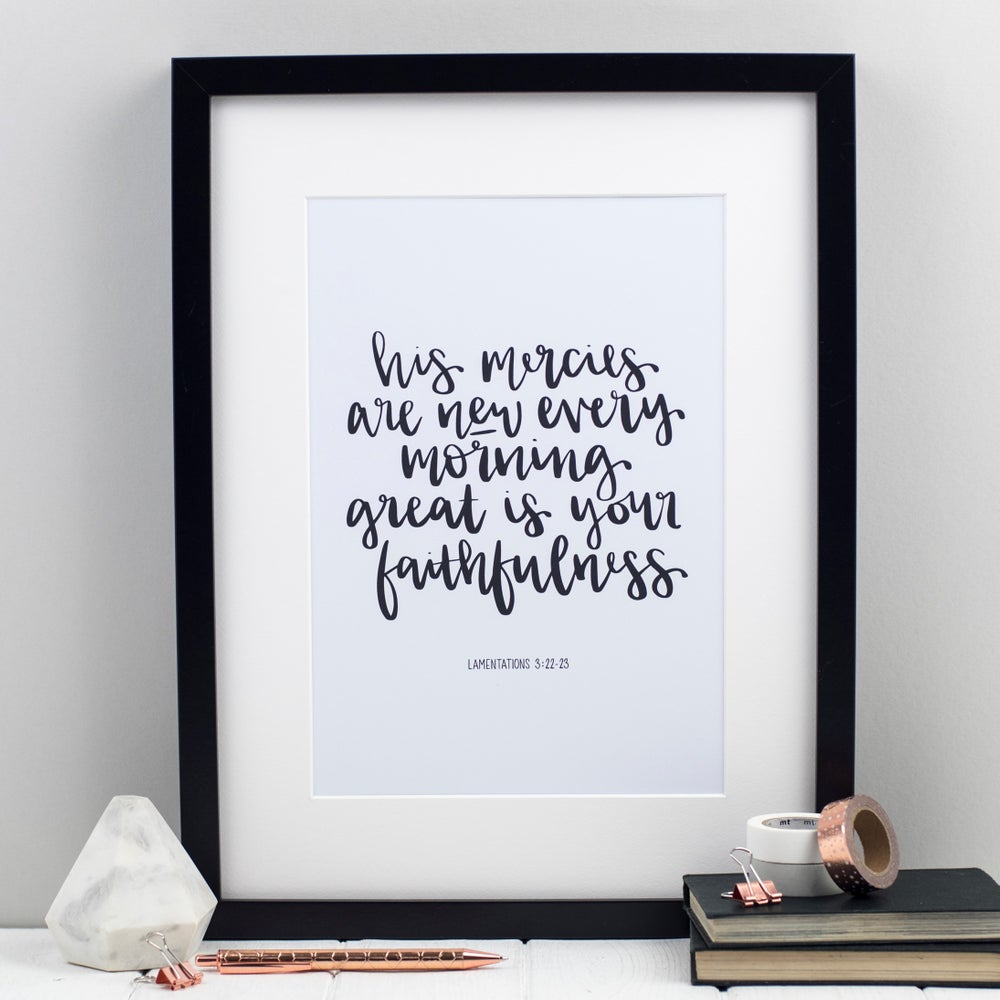 his mercies
are new every
morning
great is your
faithfulness
LAMENTATIONS 3:22-23
mt mt